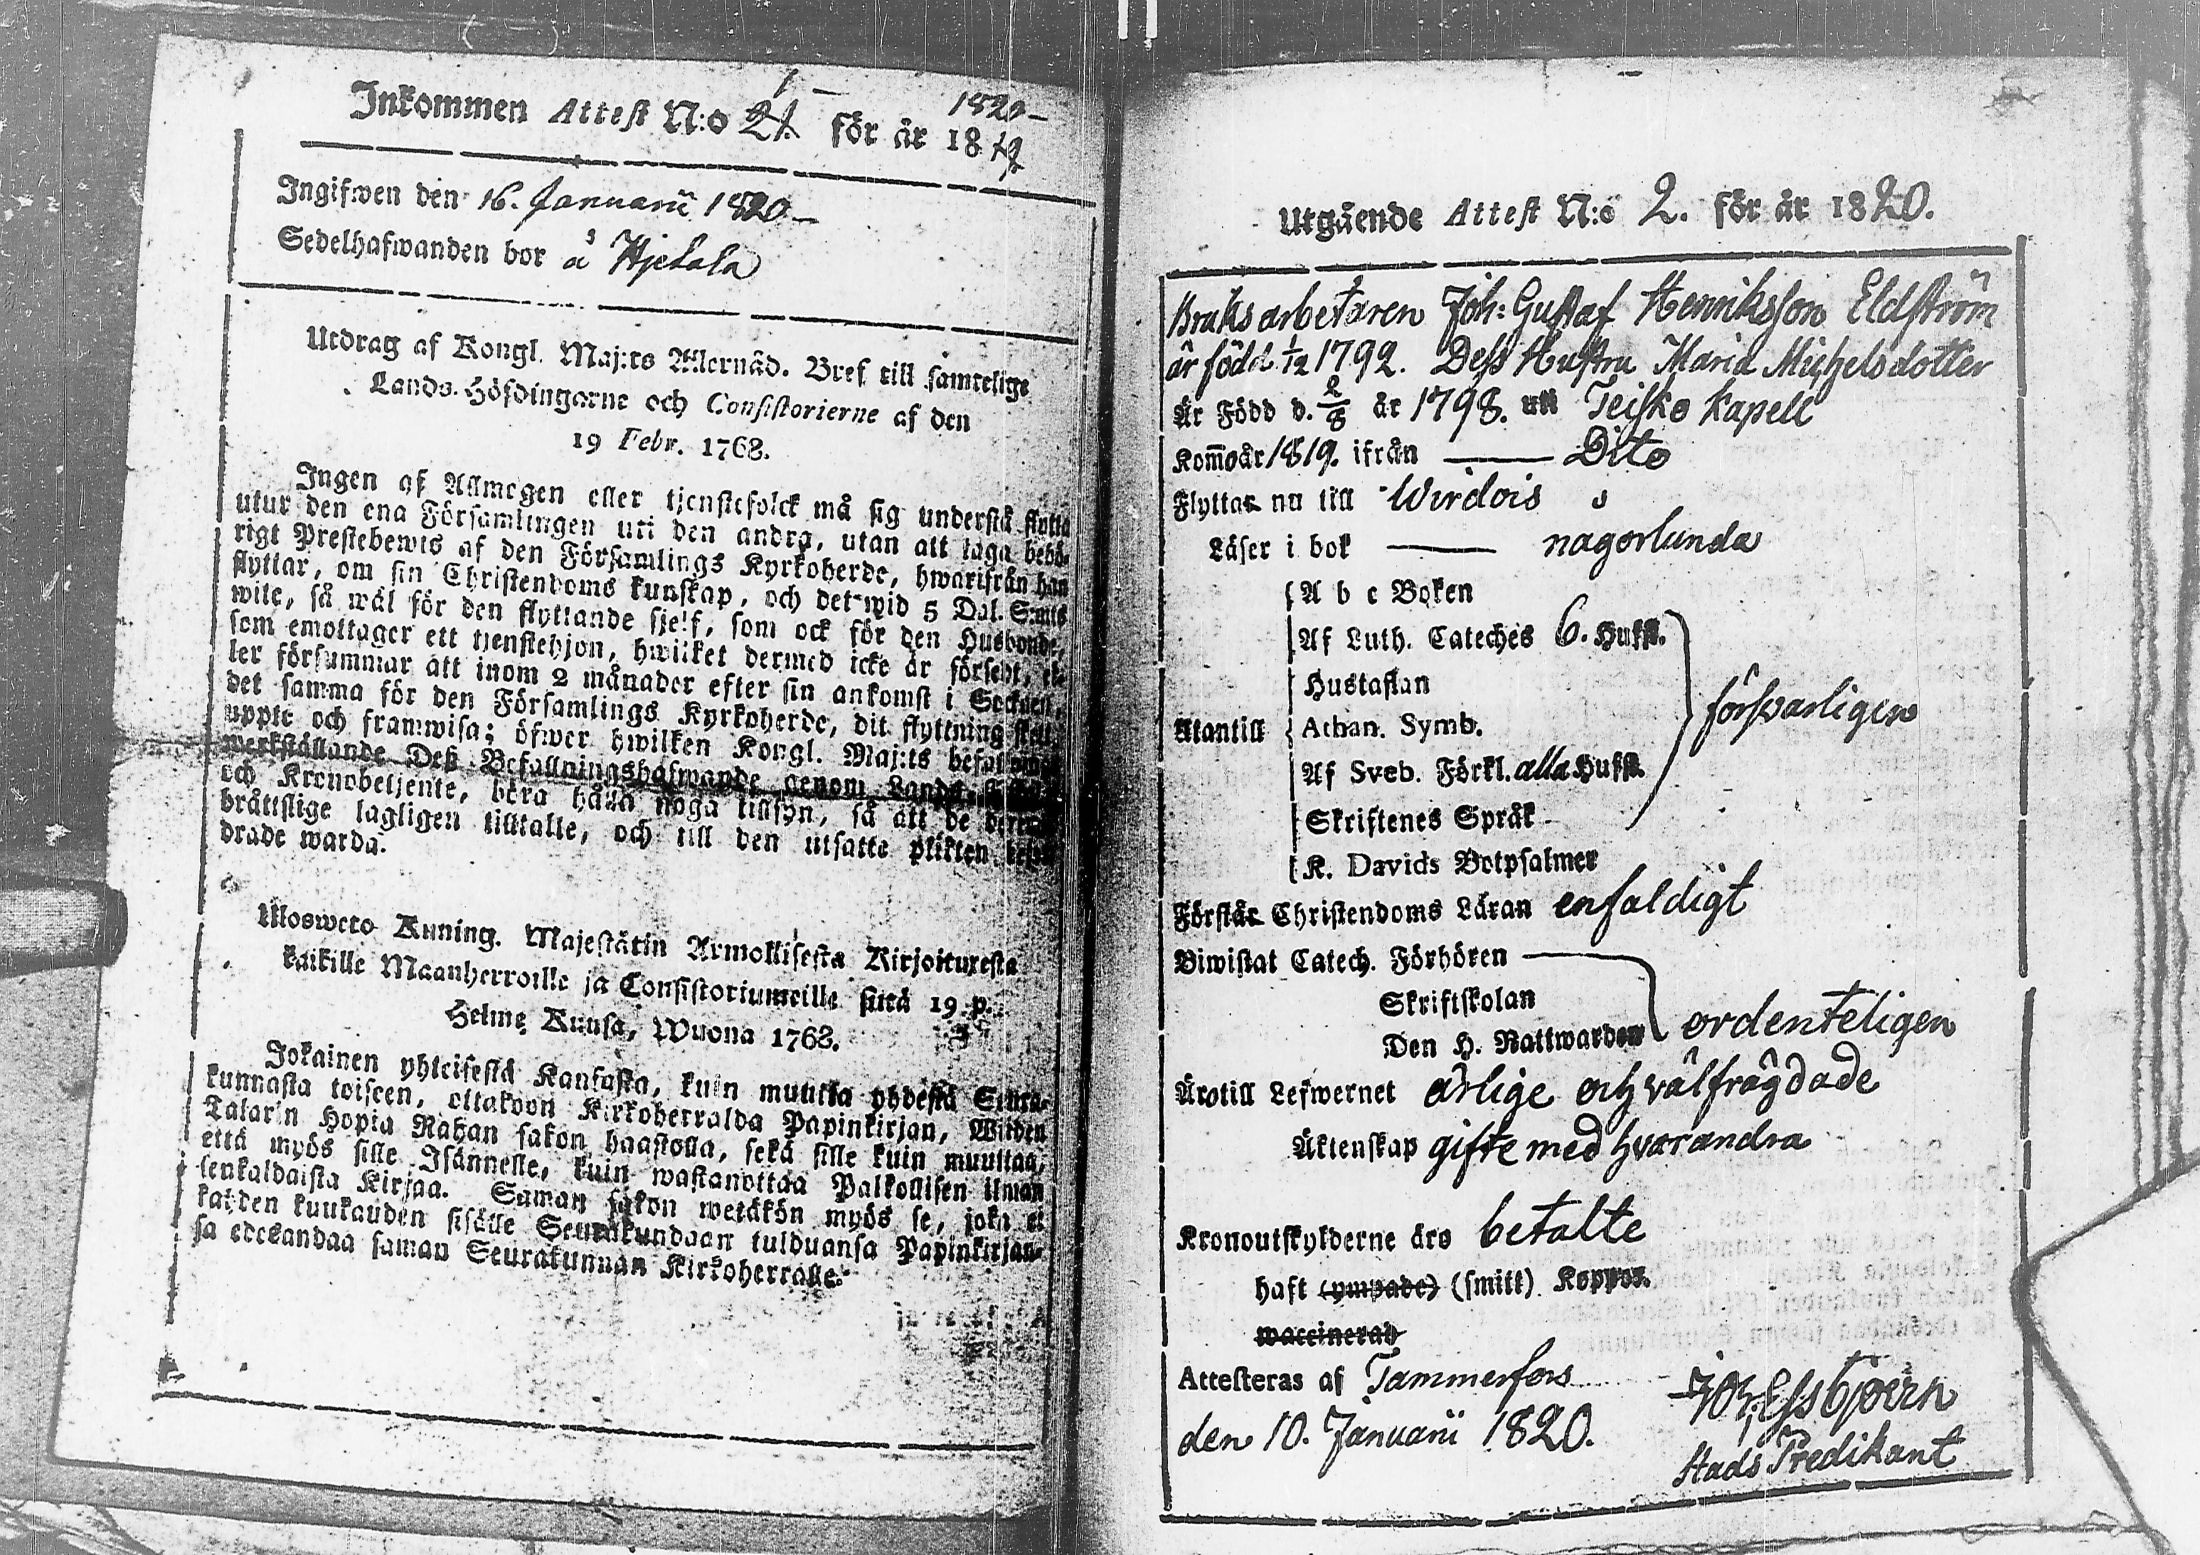 Inkommen Attest N:o 21. 1 för år 1819 1820
Ingifwen den 16. Januarii 1820
Sedelhafwanden bor å Hjetala
Utdrag af Kongl. Maj:ts Allernåd. Bref till samtelige
Lands-Höfdingarne och Consistorierne af den
19 Febr. 1768.
Ingen af Allmogen eller tjenstefolck må sig understå flytta
utur den ena Församlingen uti den andra, utan att taga behö-
rigt Prestebewis af den Församlings Kyrkoherde, hwarifrån han
flyttar, om sin Christendoms kunskap, och det wid 5 Dal. S:mts
wite, så wäl för den flyttande sjelf, som ock för den Husbonde,
som emottager ett tjenstehjon, hwilket dermed icke är försedt, el-
ler försummar att inom 2 månader efter sin ankomst i Socknen,
det samma för den Församlings Kyrkoherde, dit flyttning sker,
uppte och framwisa; öfwer hwilken Kongl. Maj:ts befallnings
werkställande Deß Befallningshafwande genom Lands
och Kronobetjente, böra hålla noga tillsyn, så att de
bråttslige lagligen tilltalte, och till den utsatte plikten
drade warda.
Ulosweto Kuning. Majestätin Armollisesta Kirjoituxesta
kaikille Maanherroille ja Consistoriumeille siitä 19 p.
Helme Kuusa, Wuona 1768.
Jokainen yhteisestä Kansasta, kuin muutta yhdestä Seura-
kunnasta toiseen, ottakoon Kirkoherralda Papinkirjan, Wiiden
Talarin Hopia Rahan sakon haastolla, sekä sille kuin muuttaa,
että myös sille Isännelle, kuin wastanottaa Palkollisen ilman
senkaldaista Kirjaa. Saman sakon wetäkön myös se, joka ei
kahden kuukauden sisälle Seurakundaan tulduansa Papinkirjan-
sa edesandaa saman Seurakunnan Kirkoherralle.
Utgående Attest N:o 2. för år 1820.
Bruks arbetaren Joh: Gustaf Henriksson Eldström
är född 1/12 1792. Dess Hustru Maria Michelsdotter
Är Född d. 2/8 år 1798. uti Teisko Kapell
Kom̅o år 1819. ifrån — Dito
Flytta nu till Wirdois
Läser i bok — någorlunda
A b c Boken
Af Luth. Cateches 6. Hufst.
Hustaflan
Utantill Athan. Symb. försvarligen
Af Sveb. Förkl. alla Hufst.
Skriftenes Språk
K. Davids Botpsalmer
Förstår Christendoms Läran enfaldigt
Biwistat Catech. Förhören
Skriftskolan
Den H. Nattwarden ordenteligen
Äro till Lefwernet ärlige och välfrägdade
Äktenskap gifte med hvarandra
Kronoutskylderne äro betalte
haft (ympade) (smitt) Koppor.
waccinerad
Attesteras af Tammerfors
den 10. Januarii 1820.
Joh. Essbjoern
Stads Predikant